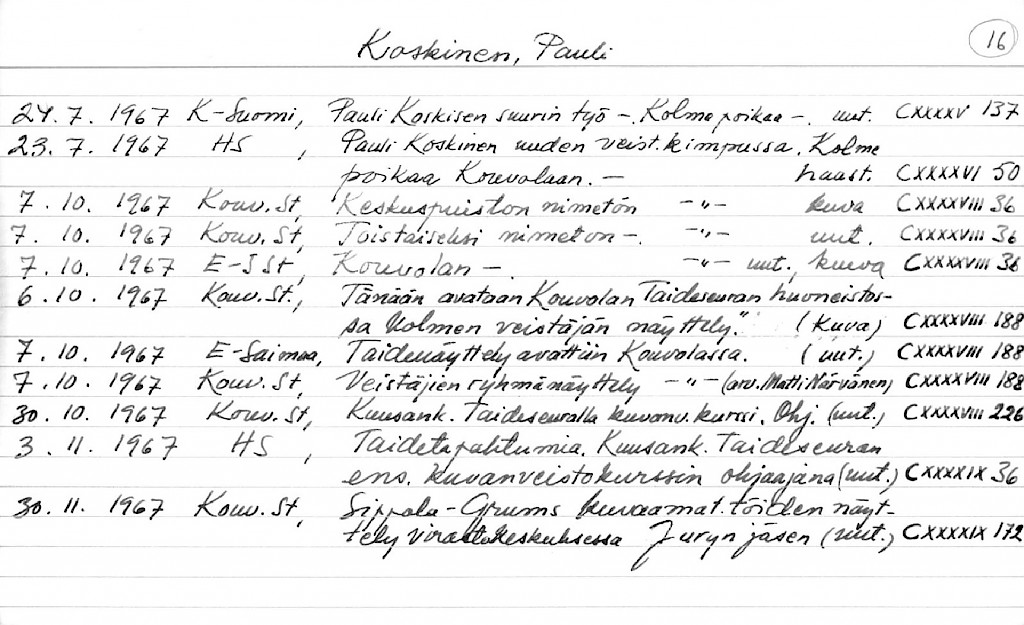 Koskinen, Pauli
16
24. 7. 1967 K-Suomi, Pauli Koskisen suurin työ -. Kolme poikaa -. uut. CXXXXV 137
23. 7. 1967 HS , Pauli Koskinen uuden veist. kimpussa. Kolme
poikaa Kouvolaan. - haast. CXXXXVI 50
7. 10. 1967 Kouv. St, Keskuspuiston nimetön -"- kuva CXXXXVIII 36
7. 10. 1967 Kouv. St, Toistaiseksi nimetön -. -"- uut. CXXXXVIII 36
7. 10. 1967 E-S St, Kouvolan -. -"- uut., kuva CXXXXVIII 36
6. 10. 1967 Kouv. St., Tänään avataan Kouvolan Taideseuran huoneistos-
sa Kolmen veistäjän näyttely." (kuva) CXXXXVIII 188
7. 10. 1967 E-Saimaa, Taidenäyttely avattiin Kouvolassa. (uut.) CXXXXVIII 188
7. 10. 1967 Kouv. St, Veistäjien ryhmänäyttely -"- (arv. Matti Närvänen) CXXXXVIII 188
30. 10. 1967 Kouv. St, Kuusank. Taideseuralla kuvanv. kurssi. Ohj. (uut.) CXXXXVIII 226
3. 11. 1967 HS , Taidetapahtumia. Kuusank. Taideseuran
ens. kuvanveistokurssin ohjaajana (uut.) CXXXXIX 36
30. 11. 1967 Kouv. St, Sippola-Grums kuvaamat. töiden näyt-
tely virastokeskuksessa Juryn jäsen (uut.) CXXXXIX 172